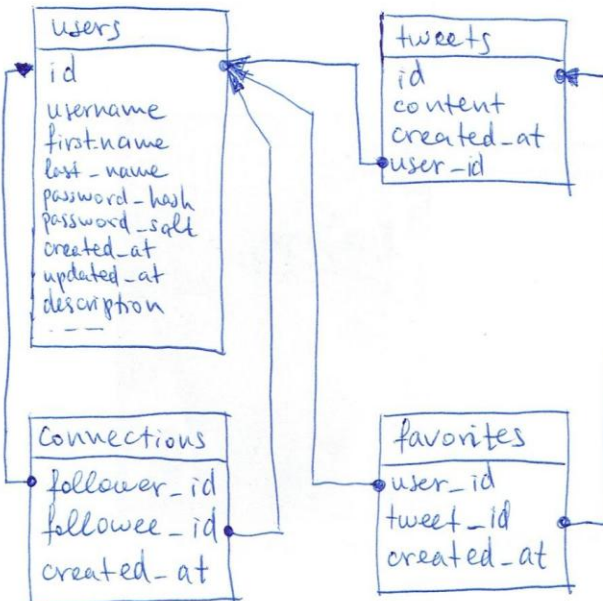 users
id
username
first_name
last_name
password_hash
password_salt
created_at
updated_at
description
tweets
id
content
created_at
user_id
connections
follower_id
followee_id
created_at
favorites
user_id
tweet_id
created_at